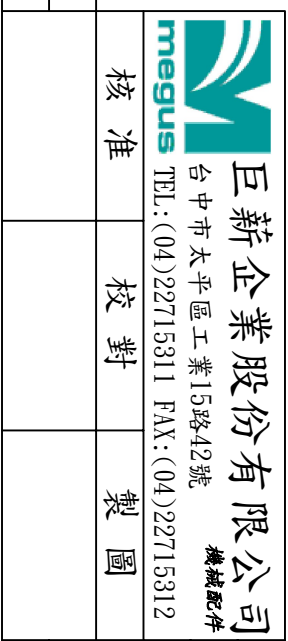 megus
巨薪企業股份有限公司
機械配件
台中市太平區工業15路42號
TEL:(04)22715311 FAX:(04)22715312
核准 校對 製圖